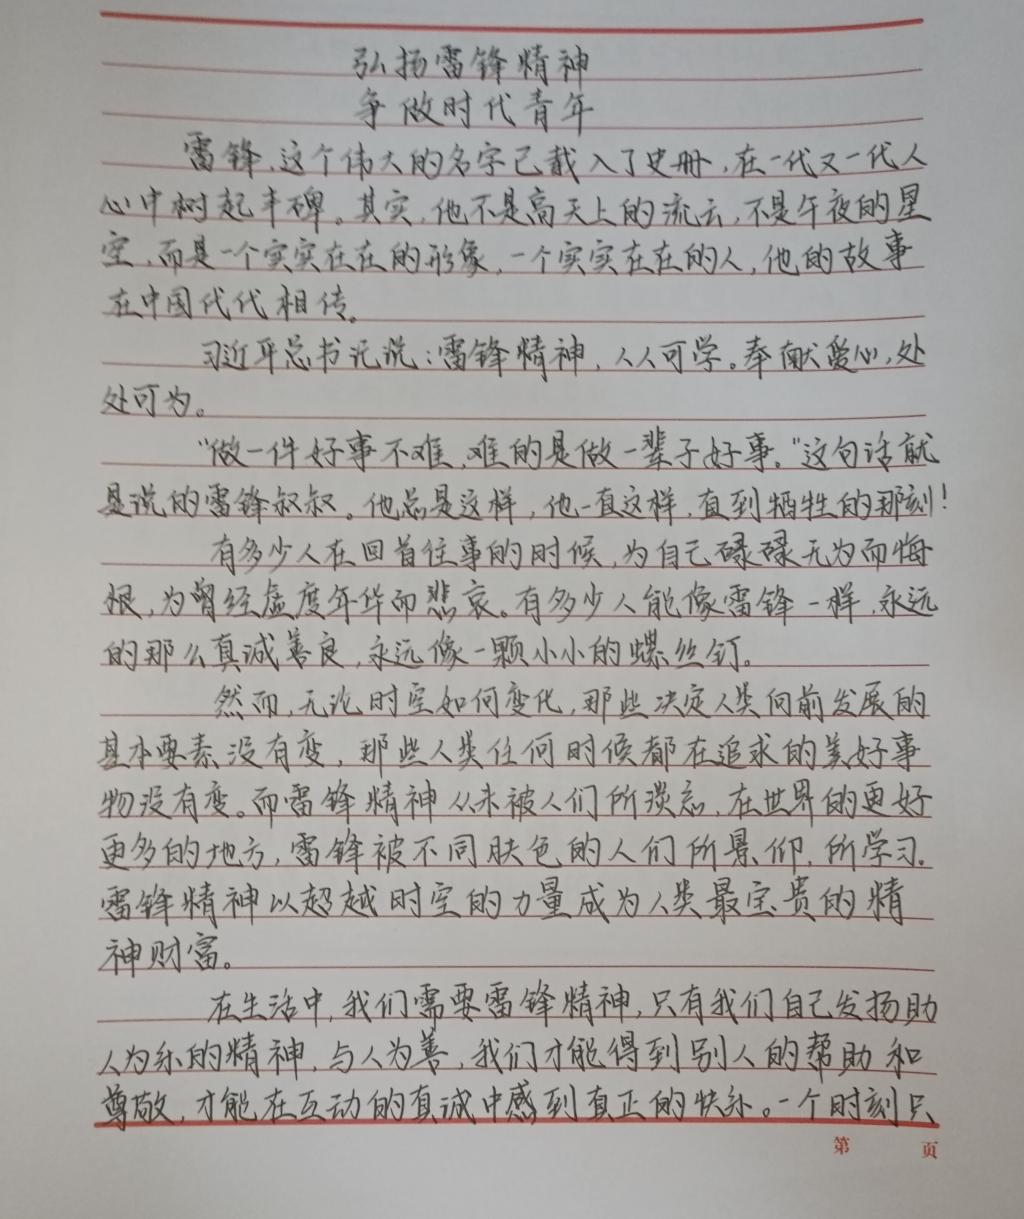 弘扬雷锋精神
争做时代青年
雷锋，这个伟大的名字已载入了史册，在一代又一代人
心中树起丰碑。其实，他不是高天上的流云，不是午夜的星
空，而是一个实实在在的形像，一个实实在在的人，他的故事
在中国代代相传。
习近平总书记说：雷锋精神，人人可学。奉献爱心，处
处可为。
“做一件好事不难，难的是做一辈子好事。”这句话就
是说的雷锋叔叔。他总是这样，他一直这样，直到牺牲的那刻！
有多少人在回首往事的时候，为自己碌碌无为而悔
恨，为曾经虚度年华而悲哀。有多少人能像雷锋一样，永远
的那么真诚善良，永远像一颗小小的螺丝钉。
然而，无论时空如何变化，那些决定人类向前发展的
基本要素没有变，那些人类任何时候都在追求的美好事
物没有变。而雷锋精神从未被人们所淡忘，在世界的更好
更多的地方，雷锋被不同肤色的人们所景仰，所学习.
雷锋精神以超越时空的力量成为人类最宝贵的精
神财富。
在生活中，我们需要雷锋精神，只有我们自己发扬助
人为乐的精神，与人为善，我们才能得到别人的帮助和
尊敬，才能在互动的真诚中感到真正的快乐。一个时刻只
第 页